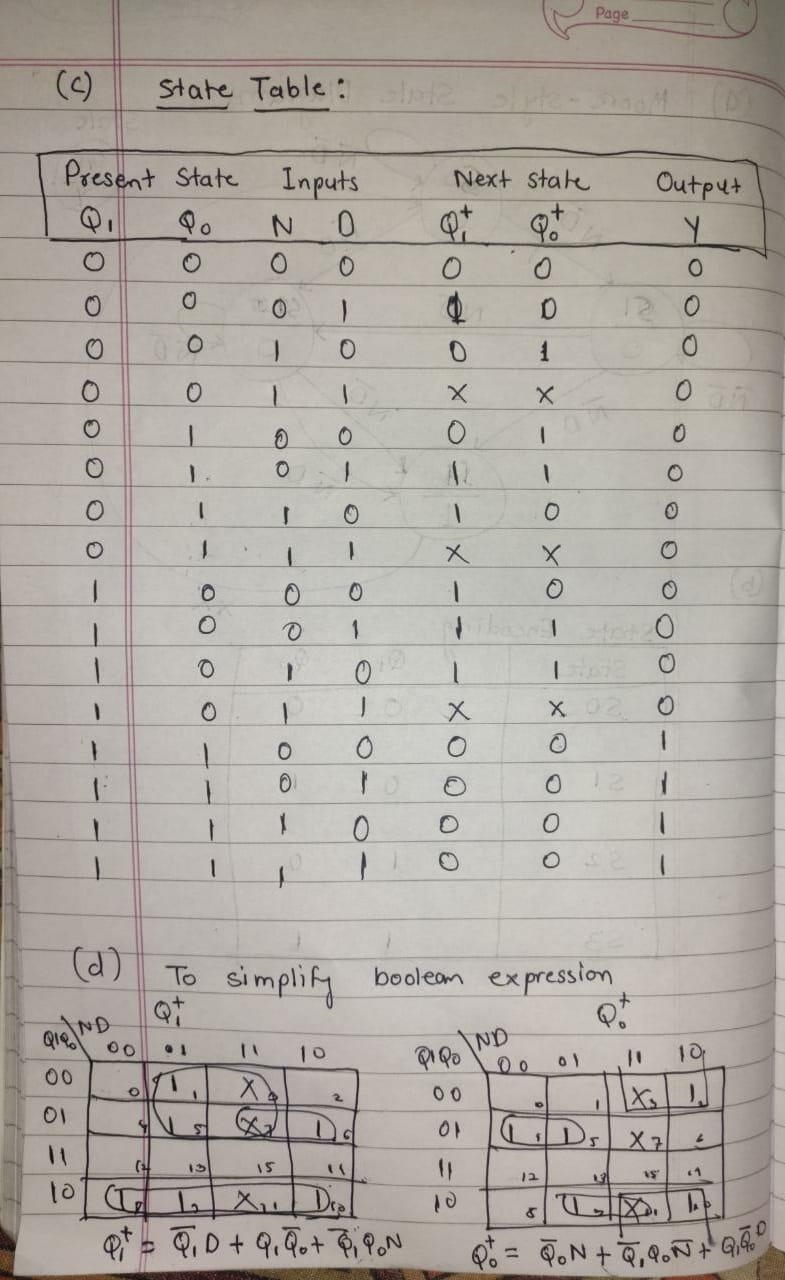 Page
(c) State Table:
Present State Inputs Next State Output
Q₁ Q₀ N D Q₁⁺ Q₀⁺ Y
0 0 0 0 0 0 0
0 0 0 1 1 0 0
0 0 1 0 0 1 0
0 0 1 1 X X 0
0 1 0 0 0 1 0
0 1 0 1 1 1 0
0 1 1 0 1 0 0
0 1 1 1 X X 0
1 0 0 0 1 0 0
1 0 0 1 1 1 0
1 0 1 0 1 1 0
1 0 1 1 X X 0
1 1 0 0 0 0 1
1 1 0 1 0 0 1
1 1 1 0 0 0 1
1 1 1 1 0 0 1
(d) To simplify boolean expression
Q₁⁺
Q₁Q₀\ND 00 01 11 10
00 0 1 1 X 2
01 1 5 X 7 1 6
11 13 15
10 1 1 X 1
Q₁⁺ = Q̅₁D + Q₁Q̅₀ + Q̅₁Q₀N
Q₀⁺
Q₁Q₀\ND 00 01 11 10
00 0 1 X 3 1
01 1 1 5 X 7
11 12
10 8 1 X 1
Q₀⁺ = Q̅₀N + Q̅₁Q₀N̅ + Q₁Q̅₀D